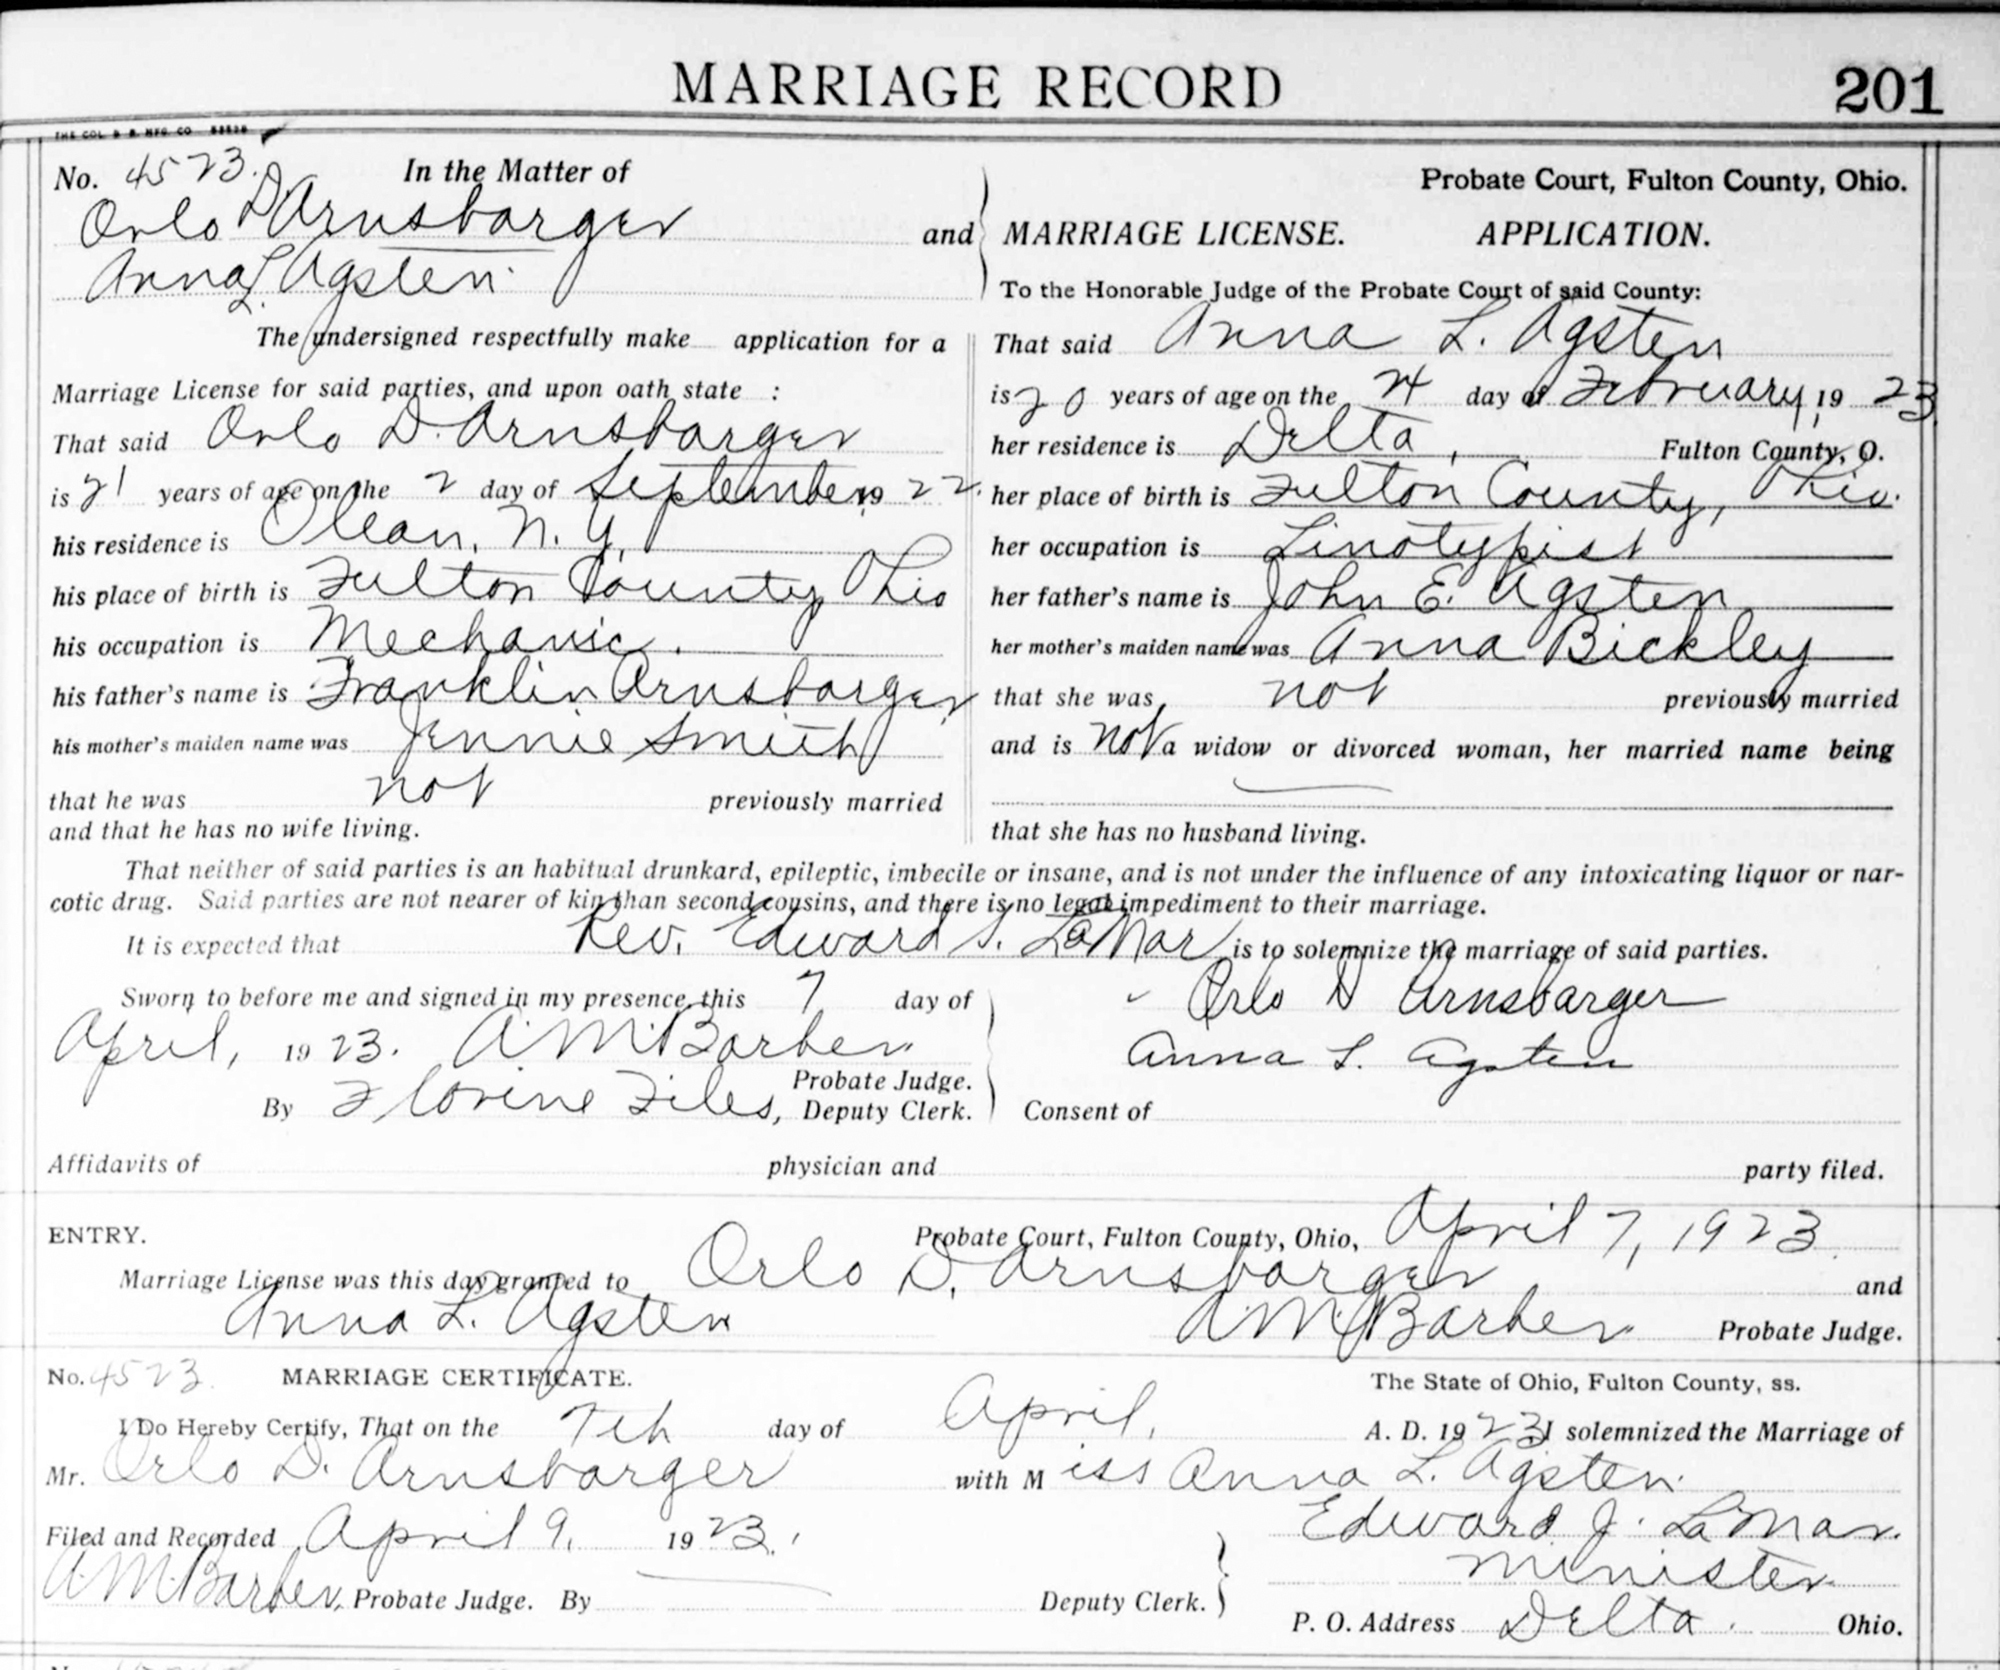 MARRIAGE RECORD 201
THE COL. B. B. MFG. CO
No. 4523. In the Matter of
Orlo D Arnsbarger and
Anna L. Agsten.
The undersigned respectfully make application for a
Marriage License for said parties, and upon oath state :
That said Orlo D. Arnsbarger
is 21 years of age on the 2 day of September, 1922.
his residence is Olean, N. Y.
his place of birth is Fulton County Ohio
his occupation is Mechanic.
his father's name is Franklin Arnsbarger
his mother's maiden name was Jennie Smith
that he was not previously married
and that he has no wife living.
Probate Court, Fulton County, Ohio.
MARRIAGE LICENSE. APPLICATION.
To the Honorable Judge of the Probate Court of said County:
That said Anna L. Agsten
is 20 years of age on the 24 day of February, 1923
her residence is Delta, Fulton County, O.
her place of birth is Fulton County, Ohio.
her occupation is Linotypist
her father's name is John E. Agsten
her mother's maiden name was Anna Bickley
that she was not previously married
and is not a widow or divorced woman, her married name being
that she has no husband living.
That neither of said parties is an habitual drunkard, epileptic, imbecile or insane, and is not under the influence of any intoxicating liquor or nar-
cotic drug. Said parties are not nearer of kin than second cousins, and there is no legal impediment to their marriage.
It is expected that Rev. Edward J. LaMar is to solemnize the marriage of said parties.
Sworn to before me and signed in my presence, this 7 day of
April, 1923. A. M. Barber
Probate Judge.
By Florine Files, Deputy Clerk.
Orlo D Arnsbarger
Anna L. Agsten
Consent of
Affidavits of physician and party filed.
ENTRY. Probate Court, Fulton County, Ohio, April 7, 1923.
Marriage License was this day granted to Orlo D. Arnsbarger and
Anna L. Agsten A. M. Barber Probate Judge.
No. 4523. MARRIAGE CERTIFICATE. The State of Ohio, Fulton County, ss.
I Do Hereby Certify, That on the 7th day of April, A. D. 1923 I solemnized the Marriage of
Mr. Orlo D. Arnsbarger with Miss Anna L. Agsten.
Filed and Recorded April 9, 1923.
A. M. Barber, Probate Judge. By Deputy Clerk.
Edward J. LaMar.
Minister
P. O. Address Delta. Ohio.